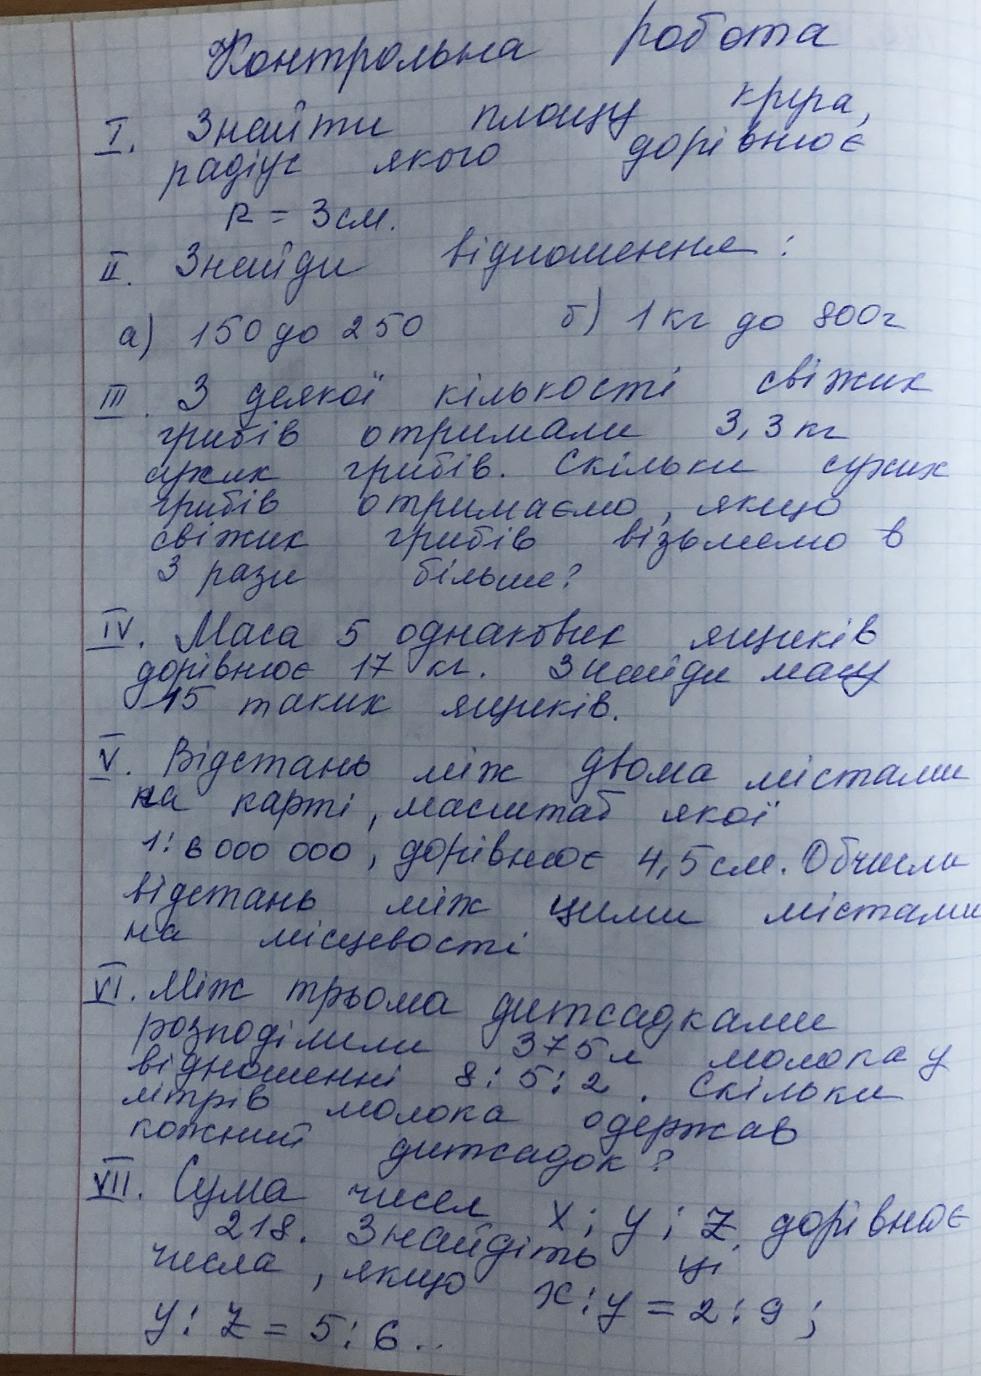 Контрольна робота
I. Знайти площу круга,
радіус якого дорівнює
R = 3 см.
II. Знайди відношення:
а) 150 до 250 б) 1 кг до 800г
III. З деякої кількості свіжих
грибів отримали 3,3 кг
сухих грибів. Скільки сухих
грибів отримаємо, якщо
свіжих грибів візьмемо в
3 рази більше?
IV. Маса 5 однакових ящиків
дорівнює 17 кг. Знайди масу
15 таких ящиків.
V. Відстань між двома містами
на карті, масштаб якої
1:6 000 000, дорівнює 4,5 см. Обчисли
відстань між цими містами
на місцевості
VI. Між трьома дитсадками
розподілили 375 л молока у
відношенні 8:5:2. Скільки
літрів молока одержав
кожний дитсадок?
VII. Сума чисел x; y; z дорівнює
218. Знайдіть ці
числа, якщо x:y = 2:9;
y:z = 5:6..